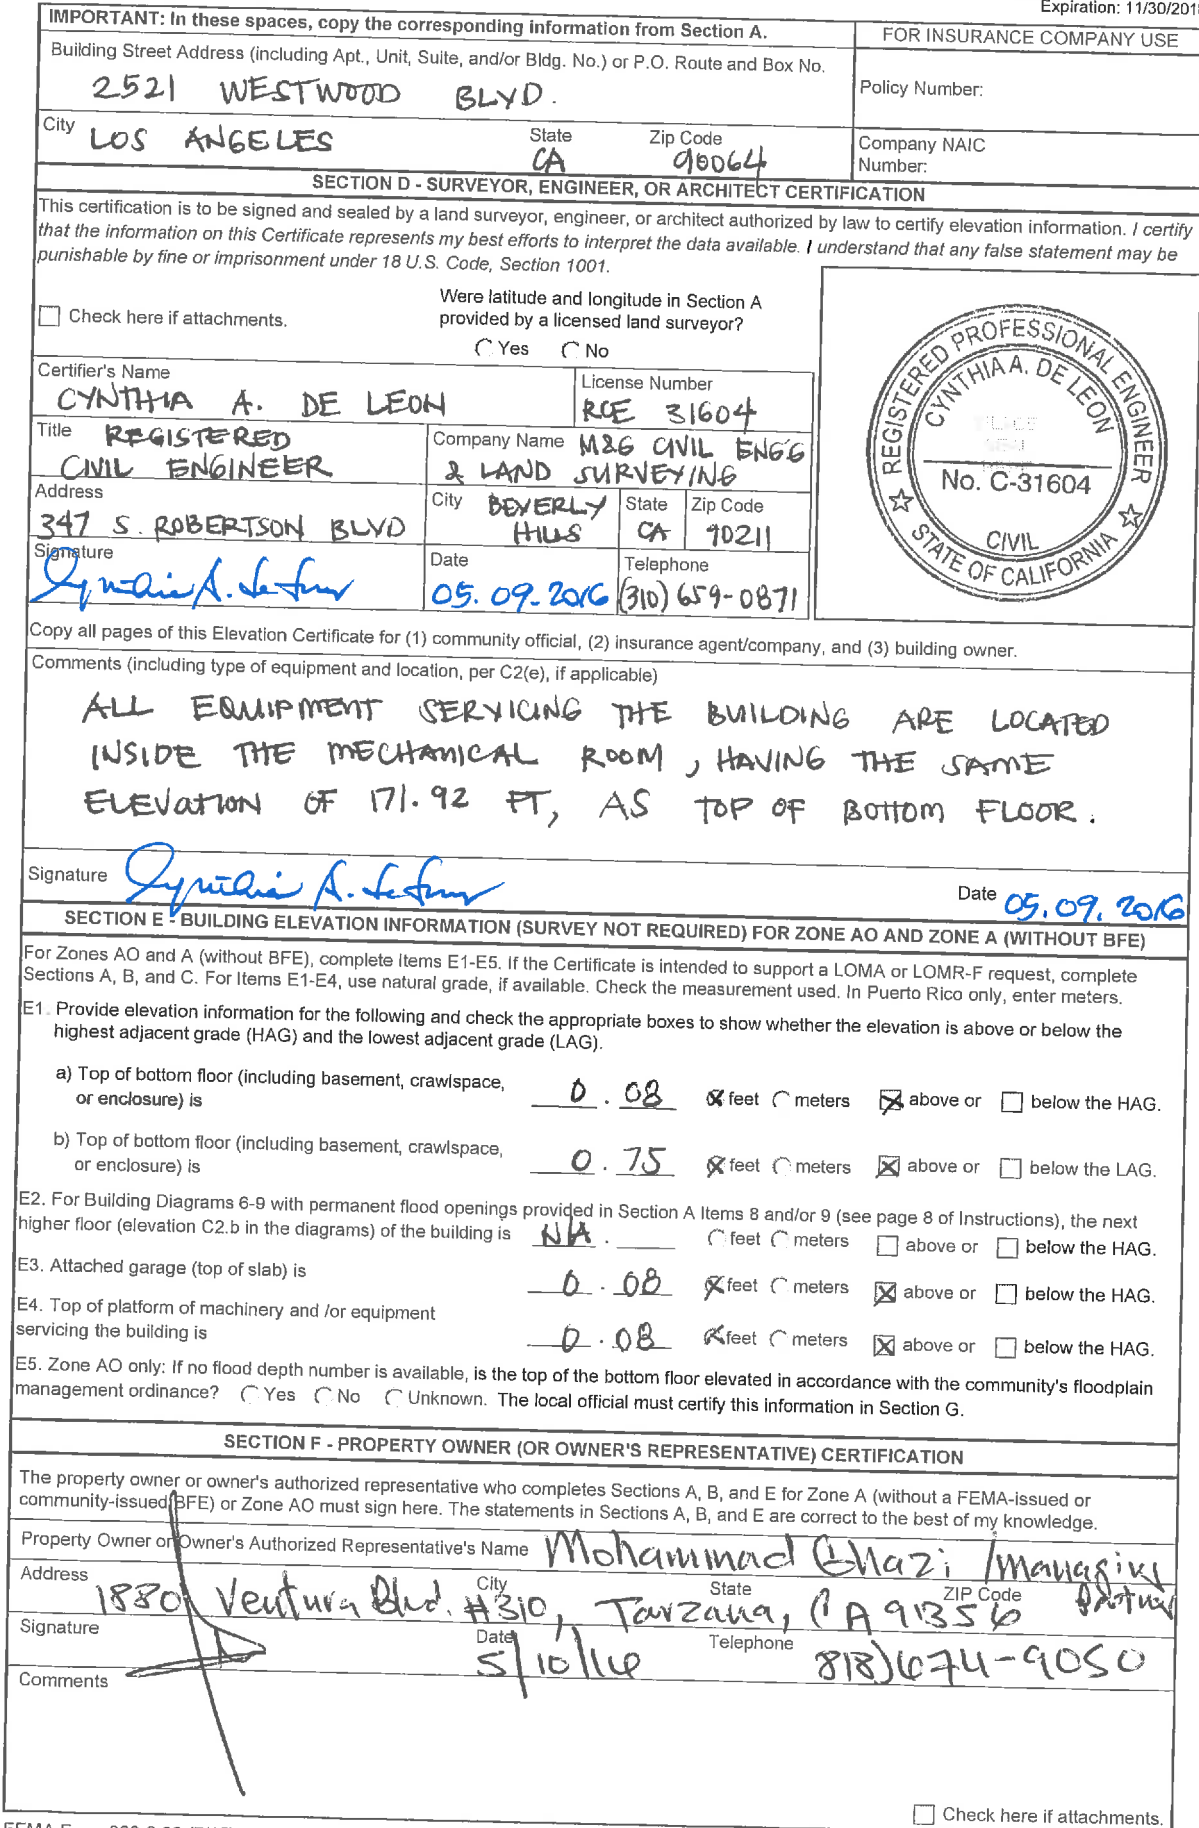 Expiration: 11/30/201
IMPORTANT: In these spaces, copy the corresponding information from Section A.
FOR INSURANCE COMPANY USE
Building Street Address (including Apt., Unit, Suite, and/or Bldg. No.) or P.O. Route and Box No.
2521 WESTWOOD BLVD.
Policy Number:
City LOS ANGELES
State CA
Zip Code 90064
Company NAIC Number:
SECTION D - SURVEYOR, ENGINEER, OR ARCHITECT CERTIFICATION
This certification is to be signed and sealed by a land surveyor, engineer, or architect authorized by law to certify elevation information. I certify
that the information on this Certificate represents my best efforts to interpret the data available. I understand that any false statement may be
punishable by fine or imprisonment under 18 U.S. Code, Section 1001.
Check here if attachments.
Were latitude and longitude in Section A
provided by a licensed land surveyor?
Yes No
REGISTERED PROFESSIONAL ENGINEER
CYNTHIA A. DE LEON
No. C-31604
CIVIL
STATE OF CALIFORNIA
Certifier's Name
CYNTHIA A. DE LEON
License Number
RCE 31604
Title REGISTERED
CIVIL ENGINEER
Company Name M&G CIVIL ENGG
& LAND SURVEYING
Address
347 S. ROBERTSON BLVD
City BEVERLY
HILLS
State
CA
Zip Code
90211
Signature
Cynthia A. De Leon
Date
05.09.2016
Telephone
(310) 659-0871
Copy all pages of this Elevation Certificate for (1) community official, (2) insurance agent/company, and (3) building owner.
Comments (including type of equipment and location, per C2(e), if applicable)
ALL EQUIPMENT SERVICING THE BUILDING ARE LOCATED
INSIDE THE MECHANICAL ROOM, HAVING THE SAME
ELEVATION OF 171.92 FT, AS TOP OF BOTTOM FLOOR.
Signature Cynthia A. De Leon
Date 05.09.2016
SECTION E - BUILDING ELEVATION INFORMATION (SURVEY NOT REQUIRED) FOR ZONE AO AND ZONE A (WITHOUT BFE)
For Zones AO and A (without BFE), complete Items E1-E5. If the Certificate is intended to support a LOMA or LOMR-F request, complete
Sections A, B, and C. For Items E1-E4, use natural grade, if available. Check the measurement used. In Puerto Rico only, enter meters.
E1. Provide elevation information for the following and check the appropriate boxes to show whether the elevation is above or below the
highest adjacent grade (HAG) and the lowest adjacent grade (LAG).
a) Top of bottom floor (including basement, crawlspace,
or enclosure) is 0.08 feet meters above or below the HAG.
b) Top of bottom floor (including basement, crawlspace,
or enclosure) is 0.75 feet meters above or below the LAG.
E2. For Building Diagrams 6-9 with permanent flood openings provided in Section A Items 8 and/or 9 (see page 8 of Instructions), the next
higher floor (elevation C2.b in the diagrams) of the building is N/A. feet meters above or below the HAG.
E3. Attached garage (top of slab) is 0.08 feet meters above or below the HAG.
E4. Top of platform of machinery and /or equipment
servicing the building is 0.08 feet meters above or below the HAG.
E5. Zone AO only: If no flood depth number is available, is the top of the bottom floor elevated in accordance with the community's floodplain
management ordinance? Yes No Unknown. The local official must certify this information in Section G.
SECTION F - PROPERTY OWNER (OR OWNER'S REPRESENTATIVE) CERTIFICATION
The property owner or owner's authorized representative who completes Sections A, B, and E for Zone A (without a FEMA-issued or
community-issued BFE) or Zone AO must sign here. The statements in Sections A, B, and E are correct to the best of my knowledge.
Property Owner or Owner's Authorized Representative's Name Mohammad Ghazi / Managing
Partner
Address City State ZIP Code
18801 Ventura Blvd. #310, Tarzana, CA 91356
Signature
Date 5/10/16
Telephone 818)674-9050
Comments
Check here if attachments.